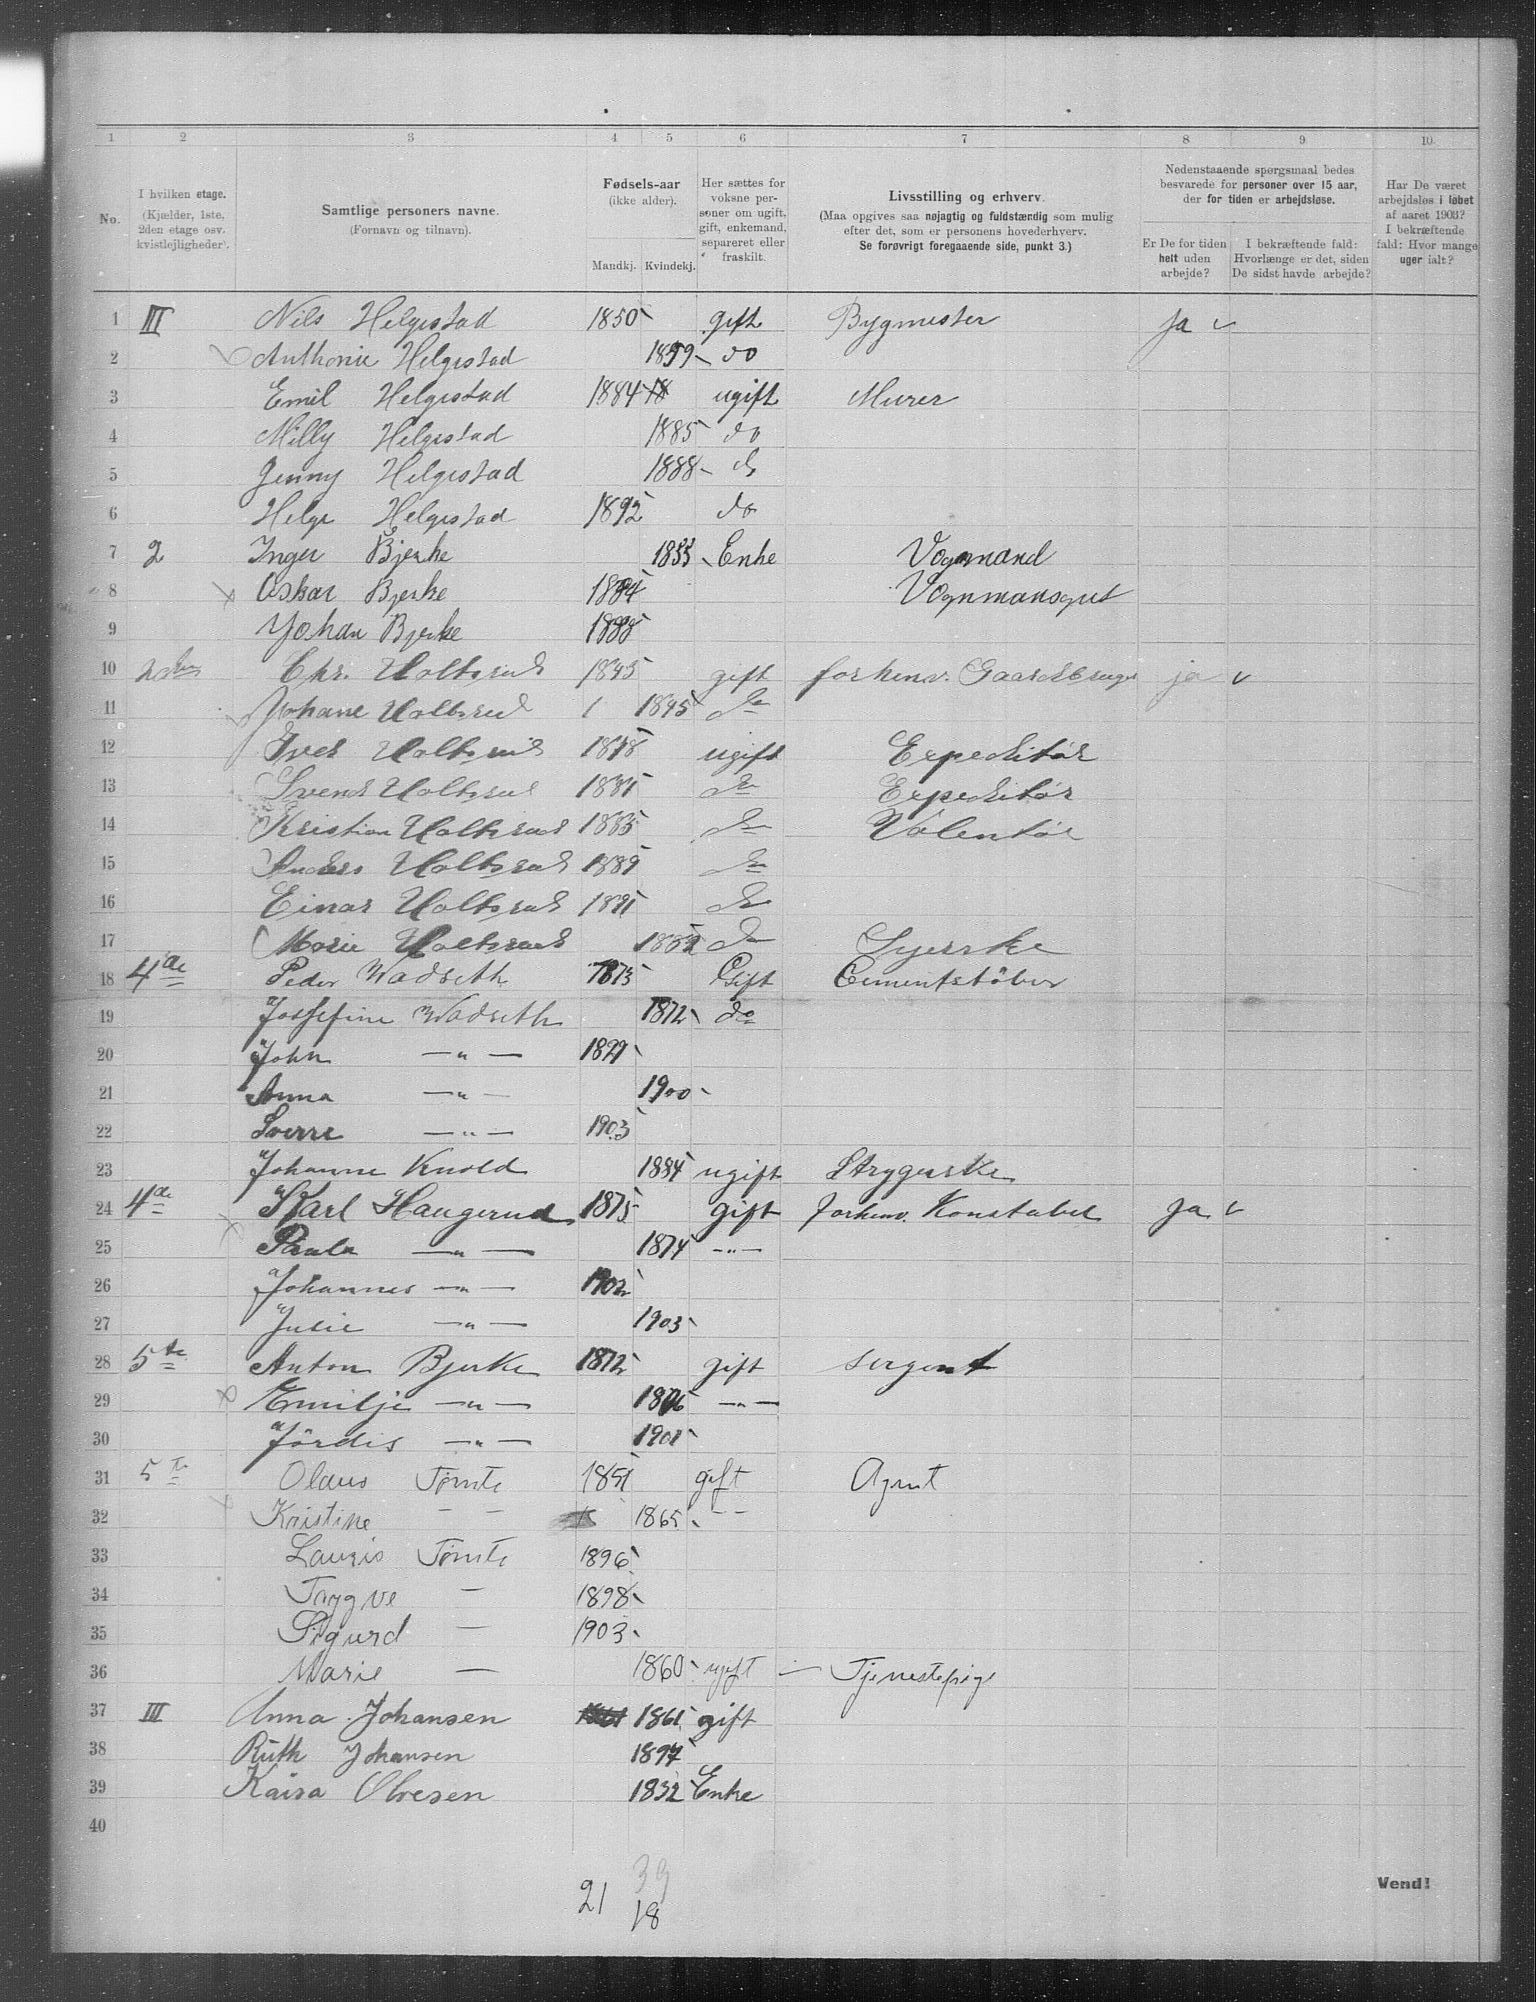 1 2 3 4 5 6 7 8 9 10
No.
I hvilken etage.
(Kjælder, 1ste, 2den etage osv. kvistlejligheder).
Samtlige personers navne.
(Fornavn og tilnavn).
Fødsels-aar
(ikke alder).
Mandkj. Kvindekj.
Her sættes for voksne personer om ugift, gift, enkemand, separeret eller fraskilt.
Livsstilling og erhverv.
(Maa opgives saa nøjagtig og fuldstændig som mulig efter det, som er personens hovederhverv.
Se forøvrigt foregaaende side, punkt 3.)
Nedenstaaende spørgsmaal bedes besvarede for personer over 15 aar, der for tiden er arbejdsløse.
Er De for tiden helt uden arbejde?
I bekræftende fald: Hvorlænge er det, siden De sidst havde arbejde?
Har De været arbejdsløs i løbet af aaret 1903? I bekræftende fald: Hvor mange uger ialt?
1 III Nils Helgestad 1850 gift Bygmester ja
2 Anthonie Helgestad 1859 do
3 Emil Helgestad 1884 18 ugift Murer
4 Milly Helgestad 1885 do
5 Jenny Helgestad 1888 do
6 Helge Helgestad 1892 do
7 2 Inger Bjerke 1855 Enke Vognmand
8 Oskar Bjerke 1884 Vognmansgut
9 Johan Bjerke 1888
10 2den Chr. Holbsrud 1845 gift forhenv. Gaardbruger ja
11 Johane Holbsrud 1 1845 do
12 Iver Holbsrud 1878 ugift Expeditør
13 Svend Holbsrud 1881 do Expeditør
14 Kristian Holbsrud 1885 do Volentør
15 Anders Holbsrud 1889 do
16 Einar Holbsrud 1891 do
17 Marie Holbsrud 1852 do Syerske
18 4de Peder Wadseth 1873 Gift Cementstøber
19 Josefine Wadseth 1872 do
20 John — „ — 1899
21 Anna — „ — 1900
22 Sverre — „ — 1903
23 Johanne Knold 1884 ugift Strygerske
24 4de Karl Haugerud 1875 gift forhenv. Konstabel ja
25 Paula — „ — 1874 — „ —
26 Johannes — „ — 1902
27 Julie — „ — 1903
28 5te Anton Bjerke 1872 gift sergent
29 Emilje — „ — 1876 — „ —
30 Jördis — „ — 1901
31 5te Olaus Tømte 1851 gift Agent
32 Kristine — — 1865 — —
33 Lauris Tømte 1896
34 Trygve — 1898
35 Sigurd — 1903
36 Marie — 1860 ugift — Tjenestepige
37 III Anna Johansen 1861 gift
38 Ruth Johansen 1897
39 Kaisa Olvesen 1832 Enke
40
39
21 18
Vend!